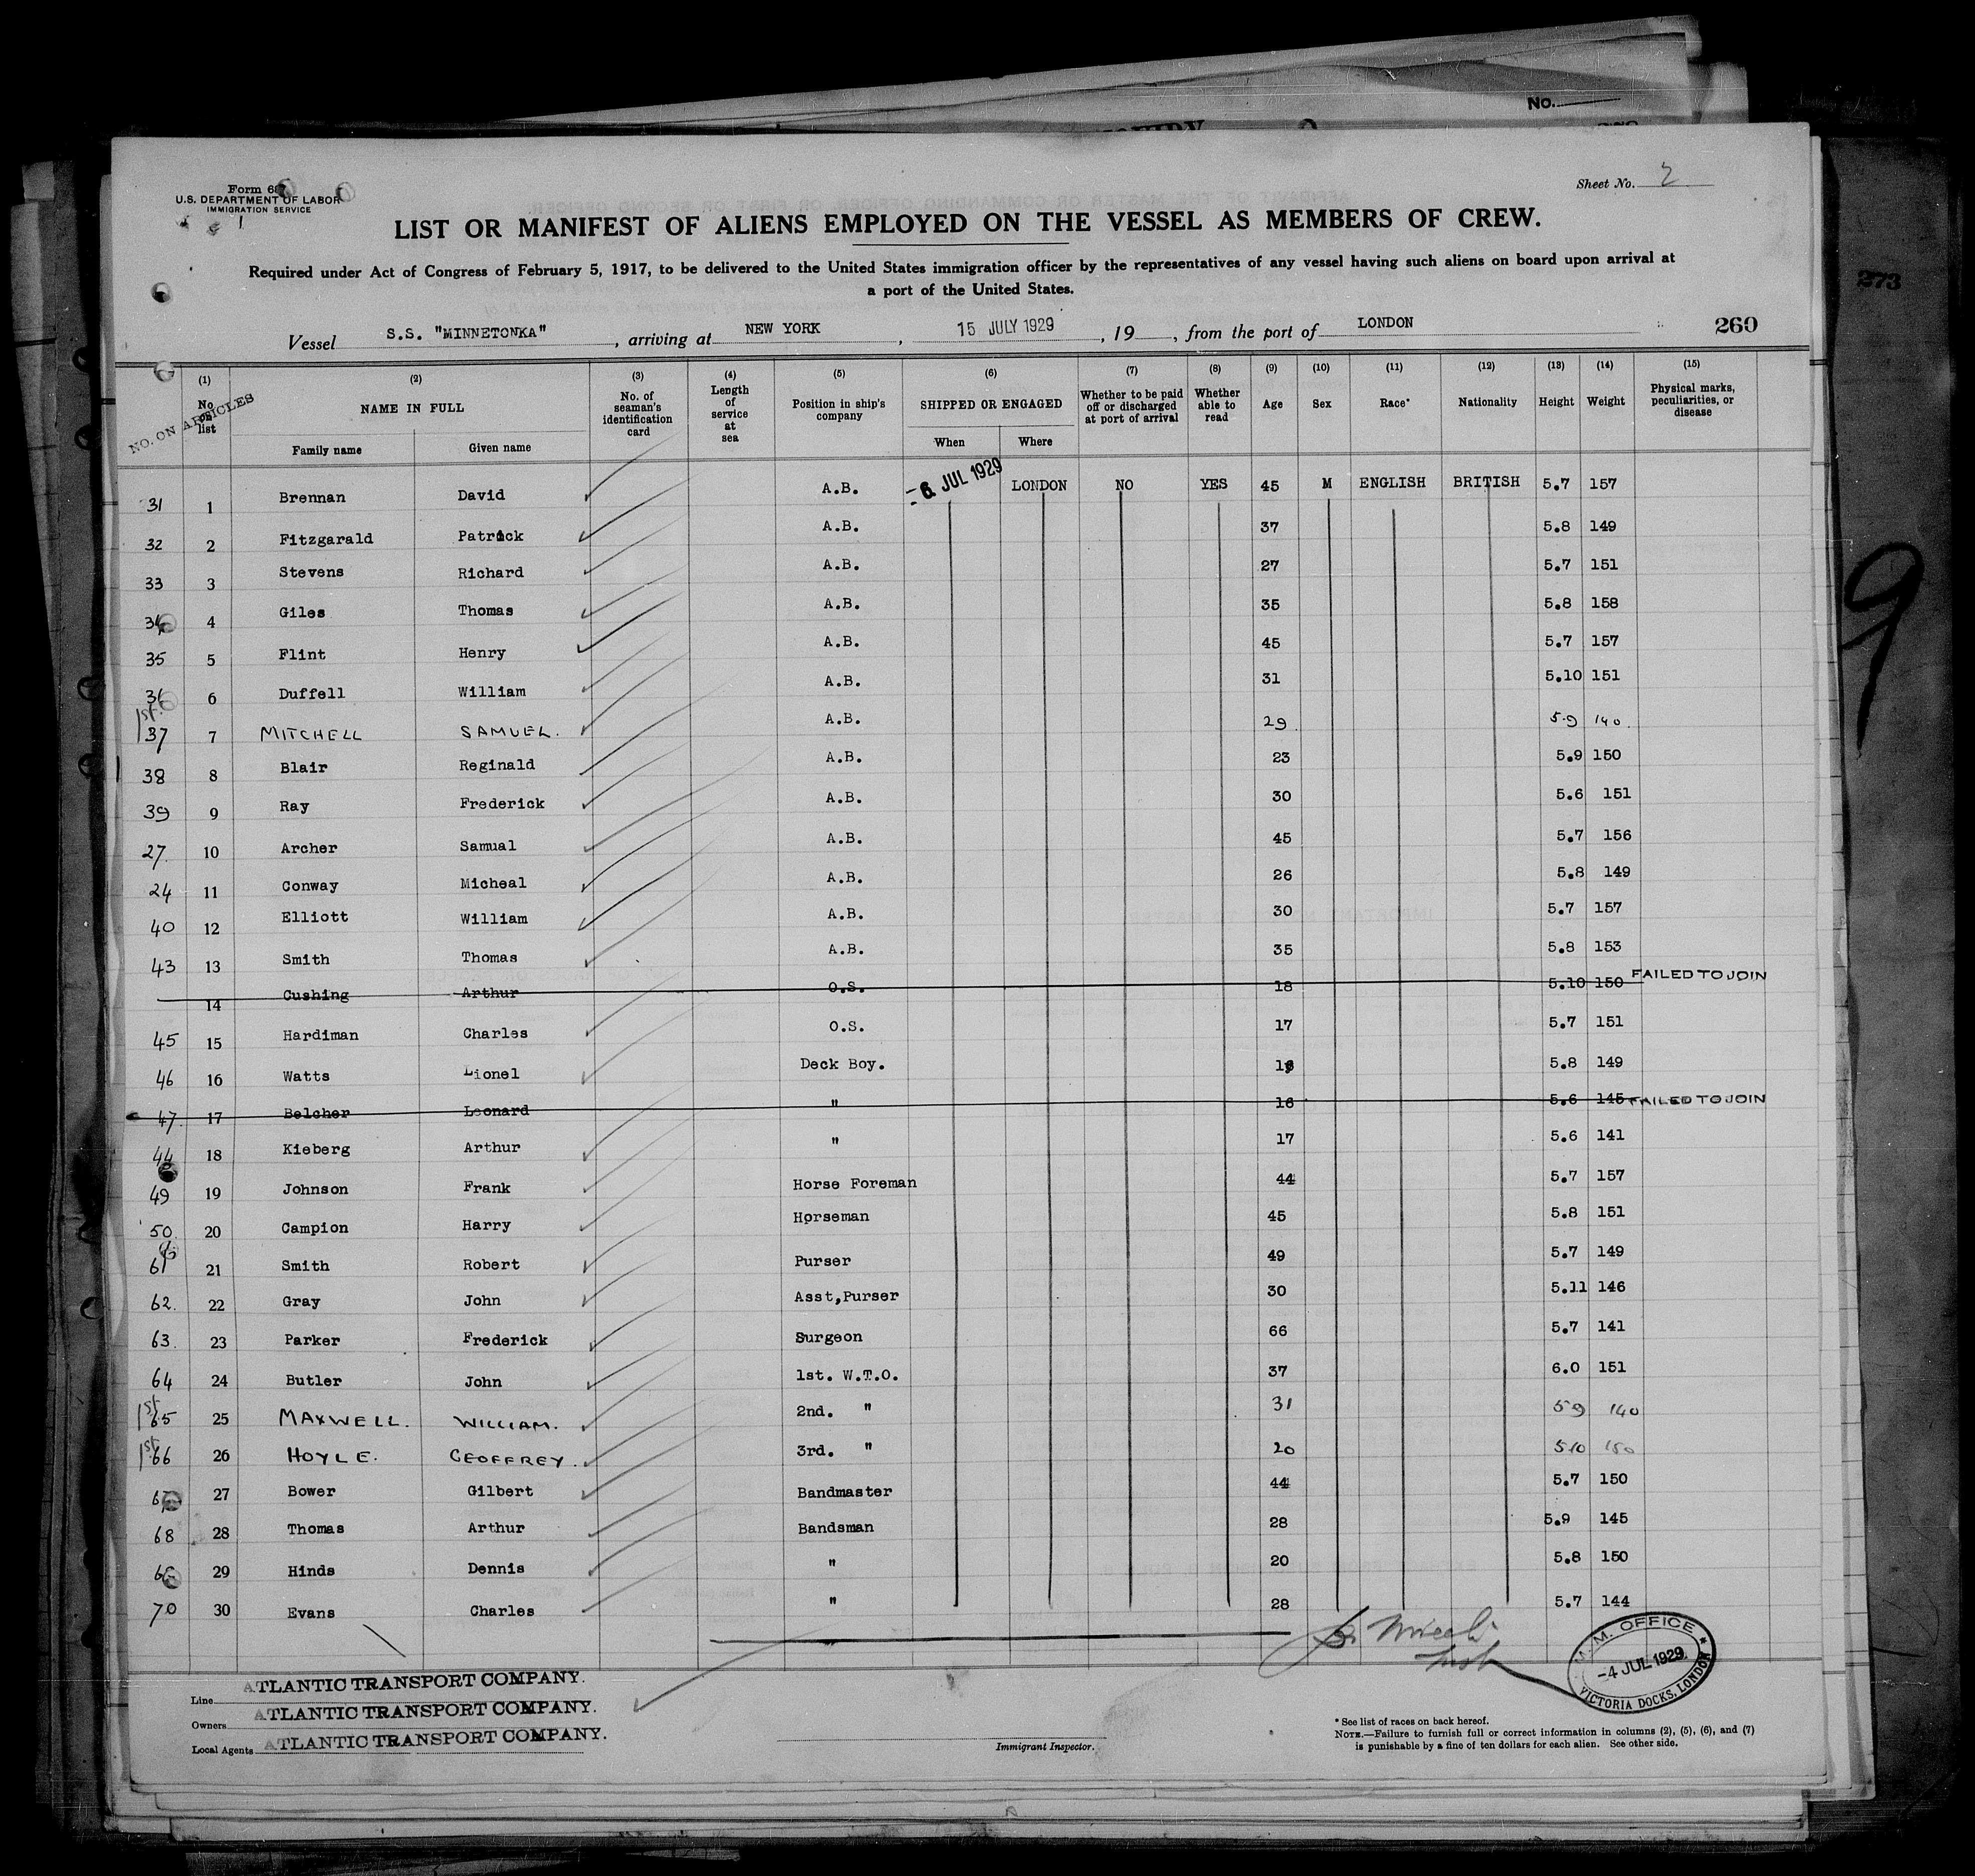 No.
273
Form 6
U.S. DEPARTMENT OF LABOR
IMMIGRATION SERVICE
Sheet No. 2
LIST OR MANIFEST OF ALIENS EMPLOYED ON THE VESSEL AS MEMBERS OF CREW.
Required under Act of Congress of February 5, 1917, to be delivered to the United States immigration officer by the representatives of any vessel having such aliens on board upon arrival at
a port of the United States.
Vessel S.S. "MINNETONKA", arriving at NEW YORK, 15 JULY 1929, 19, from the port of LONDON 260
NO. ON ARTICLES (1) No. on list (2) NAME IN FULL Family name Given name (3) No. of seaman's identification card (4) Length of service at sea (5) Position in ship's company (6) SHIPPED OR ENGAGED When Where (7) Whether to be paid off or discharged at port of arrival (8) Whether able to read (9) Age (10) Sex (11) Race* (12) Nationality (13) Height (14) Weight (15) Physical marks, peculiarities, or disease
31 1 Brennan David A.B. -6 JUL 1929 LONDON NO YES 45 M ENGLISH BRITISH 5.7 157
32 2 Fitzgarald Patrick A.B. 37 5.8 149
33 3 Stevens Richard A.B. 27 5.7 151
34 4 Giles Thomas A.B. 35 5.8 158
35 5 Flint Henry A.B. 45 5.7 157
36 6 Duffell William A.B. 31 5.10 151
1st. 37 7 MITCHELL SAMUEL. A.B. 29 5.9 140
38 8 Blair Reginald A.B. 23 5.9 150
39 9 Ray Frederick A.B. 30 5.6 151
27. 10 Archer Samual A.B. 45 5.7 156
24 11 Conway Micheal A.B. 26 5.8 149
40 12 Elliott William A.B. 30 5.7 157
43 13 Smith Thomas A.B. 35 5.8 153
14 Cushing Arthur O.S. 18 5.10 150 FAILED TO JOIN
45 15 Hardiman Charles O.S. 17 5.7 151
46 16 Watts Lionel Deck Boy. 5.8 149
47. 17 Belcher Leonard " 16 5.6 145 FAILED TO JOIN
44 18 Kieberg Arthur " 17 5.6 141
49 19 Johnson Frank Horse Foreman 44 5.7 157
50. 20 Campion Harry Horseman 45 5.8 151
61 21 Smith Robert Purser 49 5.7 149
62. 22 Gray John Asst,Purser 30 5.11 146
63. 23 Parker Frederick Surgeon 66 5.7 141
64 24 Butler John 1st. W.T.O. 37 6.0 151
1st 65 25 MAXWELL. WILLIAM. 2nd. " 31 5 9 140
1st 66 26 HOYLE. GEOFFREY. 3rd. " 20 5 10 150
27 Bower Gilbert Bandmaster 44 5.7 150
68 28 Thomas Arthur Bandsman 28 5.9 145
29 Hinds Dennis " 20 5.8 150
70 30 Evans Charles " 28 5.7 144
M.M. OFFICE
-4 JUL 1929
VICTORIA DOCKS, LONDON
Line ATLANTIC TRANSPORT COMPANY.
Owners ATLANTIC TRANSPORT COMPANY.
Local Agents ATLANTIC TRANSPORT COMPANY.
Immigrant Inspector.
* See list of races on back hereof.
NOTE.—Failure to furnish full or correct information in columns (2), (5), (6), and (7)
is punishable by a fine of ten dollars for each alien. See other side.
9